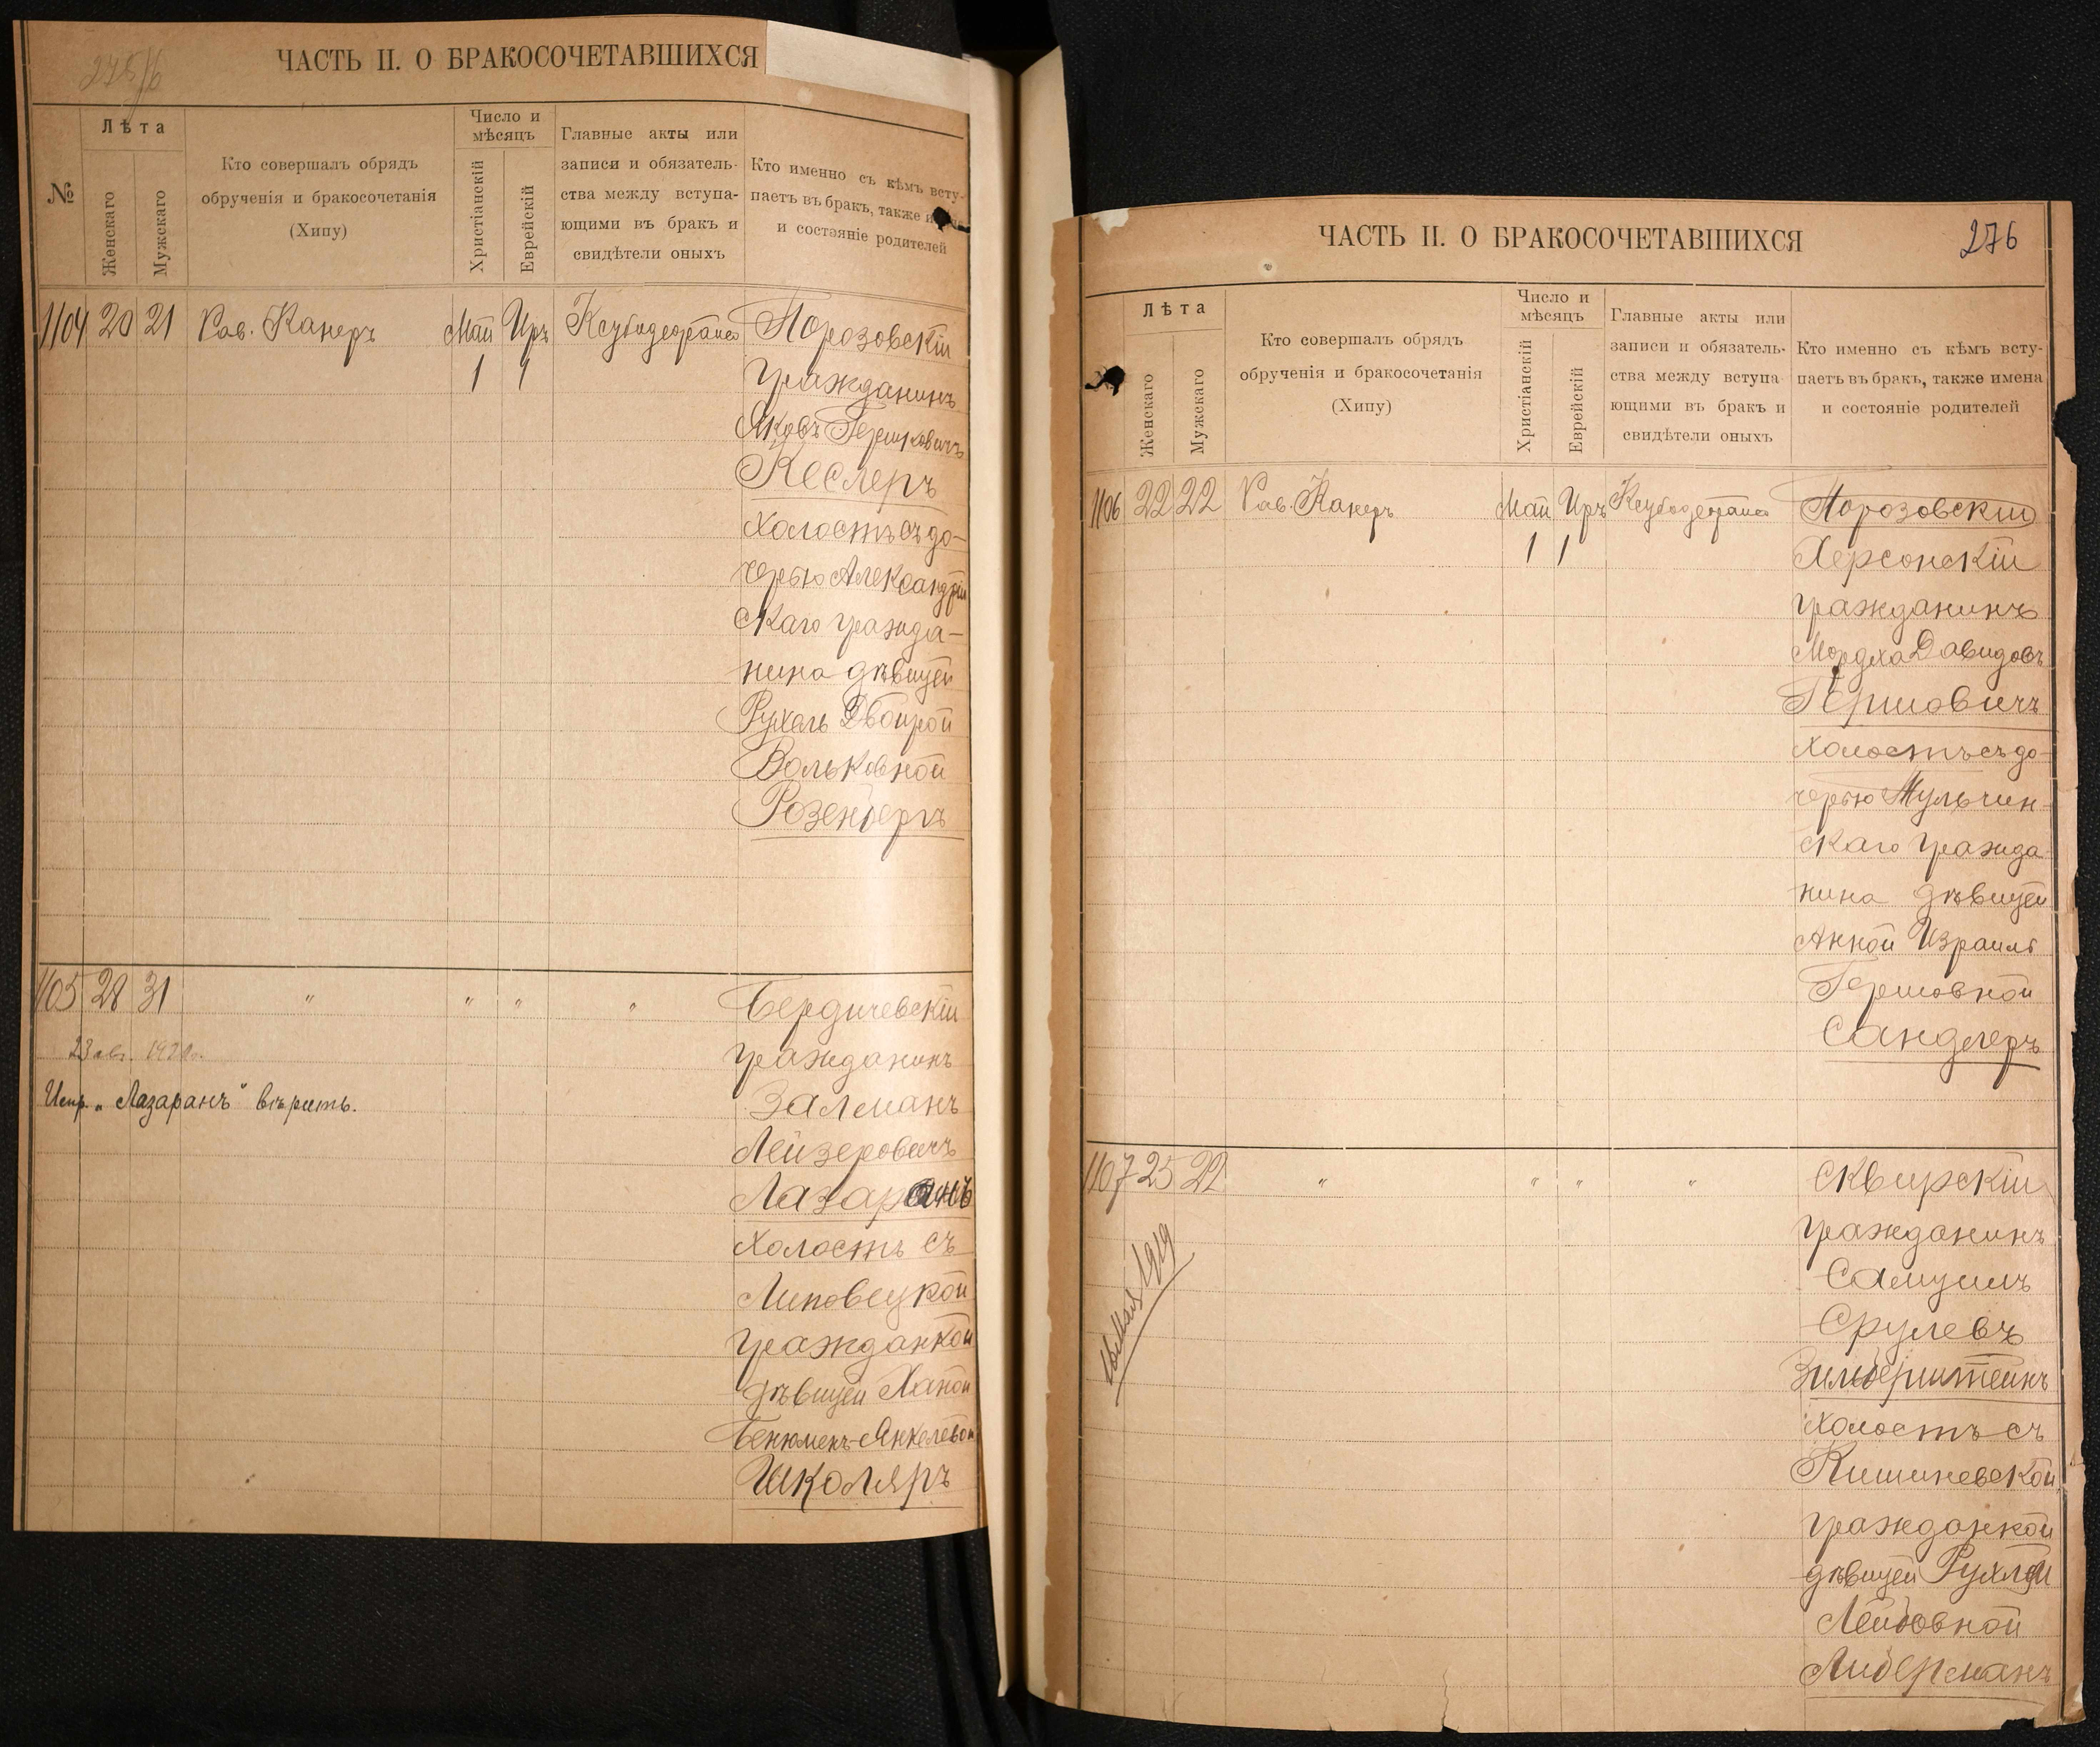 275/6
ЧАСТЬ II. О БРАКОСОЧЕТАВШИХСЯ
№
Лѣта
Женскаго
Мужскаго
Кто совершалъ обрядъ
обрученія и бракосочетанія
(Хипу)
Число и
мѣсяцъ
Христіанскій
Еврейскій
Главные акты или
записи и обязатель-
ства между вступа-
ющими въ бракъ и
свидѣтели оныхъ
Кто именно съ кѣмъ всту-
паетъ въ бракъ, также
и состояніе родителей
1104 20 21 Рав. Канеръ Май Иръ Порозовскій
1 1 гражданинъ
Яковъ Гершковичъ
Кеслеръ
холостъ съ до-
черью Александрій
скаго гражда-
нина дѣвицей
Рухель Двойрой
Вольковной
Розенбергъ
1105 28 31 " " " " Бердичевскій
23 ав. 1921г. гражданинъ
Испр. „Лазаранъ" вѣрить. Залманъ
Лейзеровичъ
Лазаранъ
холостъ съ
Липовецкой
гражданкой
дѣвицей Ханой
Бенюменъ-Янкелевой
Школяръ
ЧАСТЬ II. О БРАКОСОЧЕТАВШИХСЯ 276
Лѣта
Женскаго
Мужскаго
Кто совершалъ обрядъ
обрученія и бракосочетанія
(Хипу)
Число и
мѣсяцъ
Христіанскій
Еврейскій
Главные акты или
записи и обязатель-
ства между вступа
ющими въ бракъ и
свидѣтели оныхъ
Кто именно съ кѣмъ всту-
паетъ въ бракъ, также имена
и состояніе родителей
1106 22 22 Рав. Канеръ Май Иръ Порозовскій
1 1 Херсонскій
гражданинъ
Мордха Давидовъ
Гершовичъ
холостъ съ до-
черью Тульчин-
скаго гражда-
нина дѣвицей
Анной Израиль
Гершовной
Сандлеръ
1107 25 22 " " " " Сквирскій
гражданинъ
Самуилъ
Срулевъ
Зильберштейнъ
холостъ съ
Кишиневской
гражданкой
дѣвицей Рухлей
Лейбовной
Либерманъ
1919